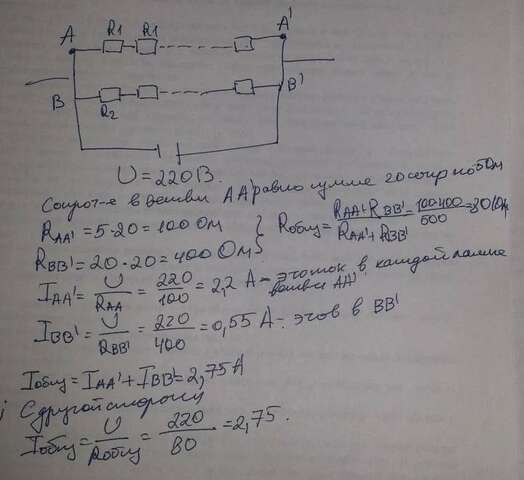 A R1 R1 A'
B R2 B'
U = 220 В.
Сопрот-е в ветви AA' равно сумме 20 сопр по 5 Ом
R_AA' = 5·20 = 100 Ом } R общ = R_AA'·R_BB' / R_AA' + R_BB' = 100·400 / 500 = 80 Ом
R_BB' = 20·20 = 400 Ом
I_AA' = U / R_AA = 220 / 100 = 2,2 А - это ток в каждой лампе ветви AA'
I_BB' = U / R_BB' = 220 / 400 = 0,55 А - это в BB'
I общ = I_AA' + I_BB' = 2,75 А
С другой стороны
I общ = U / R общ = 220 / 80 = 2,75.